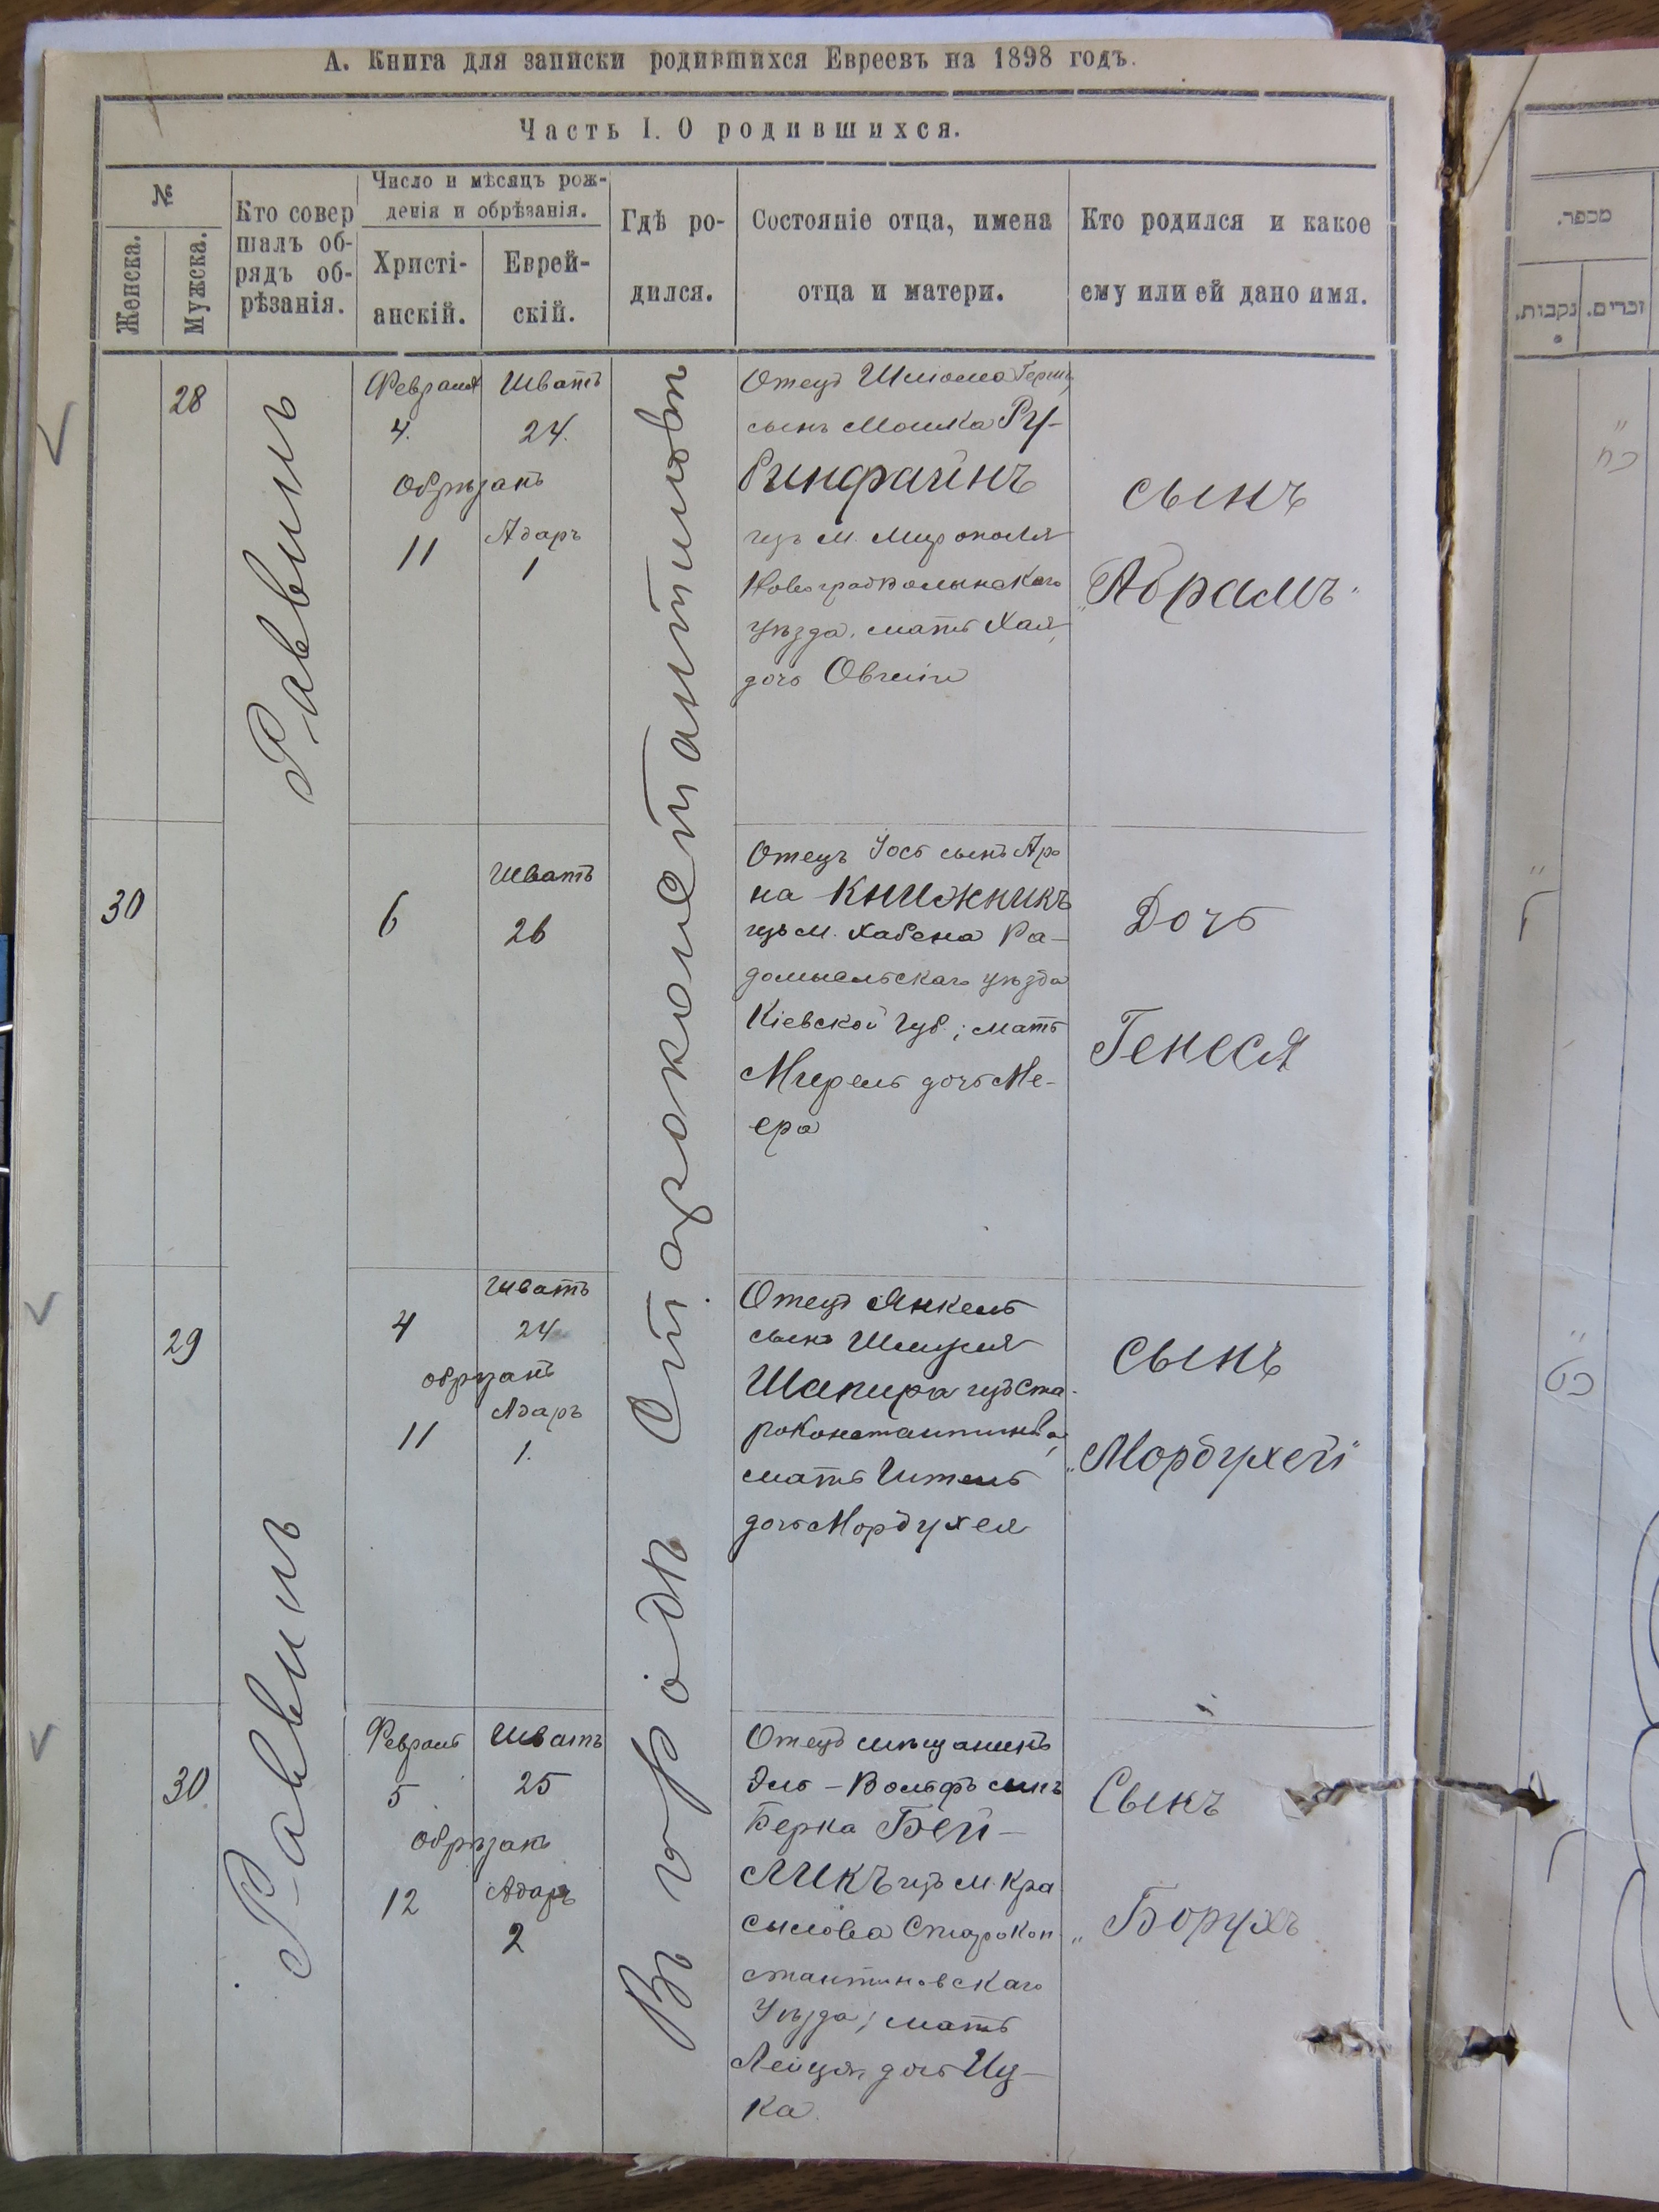 А. Книга для записки родившихся Евреевъ на 1898 годъ.
Часть I. О родившихся.
№
Женска.
Мужска.
Кто совер
шалъ об-
рядъ об-
рѣзанія.
Число и мѣсяцъ рож-
денія и обрѣзанія.
Христі-
анскій.
Еврей-
скій.
Гдѣ ро-
дился.
Состояніе отца, имена
отца и матери.
Кто родился и какое
ему или ей дано имя.
Равинъ
Въ городѣ Староконстантиновѣ
28
Февраля Шватъ
4. 24.
Обрѣзанъ
Адаръ
11 1
Отецъ Шліома Гершъ
сынъ Мошка Ру-
бинфайнъ
изъ м. Мирополя
Новоградволынскаго
уѣзда, мать Хая,
дочь Овшіи
сынъ
„Абрамъ"
30
Шватъ
6 26
Отецъ Іось сынъ Аро
на Книжникъ
изъ м. Хабена Ра-
домысльскаго уѣзда
Кіевской губ.; мать
Мирель дочь Ме-
ера
Дочь
Генеся
29
Шватъ
4 24
обрѣзанъ
Адаръ
11 1.
Отецъ Янкель
сынъ Шмуля
Шапира изъ Ста-
роконстантинова,
мать Ителъ
дочь Мордухея
сынъ
„Мордухей"
Равинъ
30
Февраль Шватъ
5 25
обрѣзанъ
Адаръ
12 2
Отецъ мѣщанинъ
Эль-Вольфъ сынъ
Берка Бей-
ликъ изъ м. Кра
силова Старокон
стантиновскаго
Уѣзда; мать
Лейця, дочь Иц-
ка.
Сынъ
„Борухъ
מכפר.
זכרים.
נקבות.
כח
ל
כט
ל